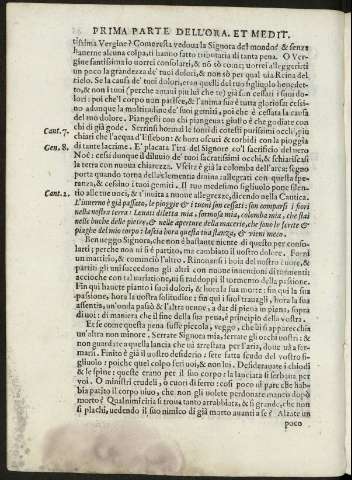 PRIMA PARTE DELL'ORA. ET MEDIT.
tissima Vergine? Come resta vedova la Signora del mondo? & senza
haverne alcuna colpa ti hanno fatto tributaria di tanta pena. O Ver
gine santissima io vorrei consolarti, & nō sò come: vorrei alleggerirti
un poco la grandezza de' tuoi dolori, & non sò per qual via Reina del
cielo. Se la causa de' tuoi dolori, eran quelli del tuo figliuolo benedet
to, & non i tuoi (perche amavi più lui che te) già son cessati i suoi do
lori: poi che'l corpo non patisce, & l'anima sua è tutta gloriosa: cessi
no adunque la moltitudine de' suoi gemiti, poi che è cessata la causa
del tuo dolore. Piangesti con chi piangeva: giusto è che godiate con
Cant. 7. chi di già gode. Serrinsi hormai le fonti di cotesti purissimi occhi, più
chiari che l'acqua d'Esebon: & hora oscuri & torbidi con la pioggia
Gen. 8. di tante lacrime. E' placata l'ira del Signore co'l sacrificio del vero
Noè: cessi dunque il diluvio de' tuoi sacratissimi occhi, & schiariscasi
la terra con nuova chiarezza. Uscita è già la colomba dell'arca: segno
porta quando torna della clementia divina: allegrati con questa spe-
ranza, & cessino i tuoi gemiti. Il tuo medesimo figliuolo pone silen-
Cant. 2. tio alle tue voci, & t'invita a nuove allegrezze, dicendo nella Cantica.
L'inverno è già passato, le pioggie & i tuoni son cessati: son comparsi i fiori
nella nostra terra: Levati diletta mia, formosa mia, colomba mia, che stai
nelle buche delle pietre, & nelle aperture della maceria, che sono le ferite &
piaghe del mio corpo: lascia hora questa tua stanza, & vieni meco.
Ben veggo Signora, che non è bastante niente di questo per conso-
larti; perche non ti si è partito, ma cambiato il vostro dolore. Fornì
un martirio, & cominciò l'altro. Rinovansi i boia del vostro cuore, &
partiti gli uni succedono gli altri con nuove inventioni di tormenti:
accioche con tal mutatione, vi si raddoppi il tormento della passione.
Fin qui havete pianto i suoi dolori, & hora la sua morte: fin qui la sua
passione, hora la vostra solitudine: fin qui i suoi travagli, hora la sua
assentia, un'onda passò & l'altra viene, a dar di piena in piena, sopra
di voi: di maniera che il fine della sua pena, è principio della vostra.
Et se come questa pena fusse piccola, veggo, che li si apparecchia
un'altra non minore. Serrate Signora mia, serrate gli occhi vostri: &
non guardate a quella lancia che và arrestata per l'aria, dove và a fer-
marsi. Finito è già il vostro desiderio: sete fatta scudo del vostro fi-
gliuolo: poiche quel colpo ferì voi, & non lui. Desideravate i chiodi
& le spine: queste erano per il suo corpo: la lanciata si serbava per
voi. O ministri crudeli, o cuori di ferro: così poco vi pare che hab-
bia patito il corpo vivo, che non gli volete perdonare manco dopò
morto? Qual nimicitia si trova tanto arrabbiata, & sì grande, che non
si plachi, vedendo il suo nimico di già morto avanti a se? Alzate un
poco